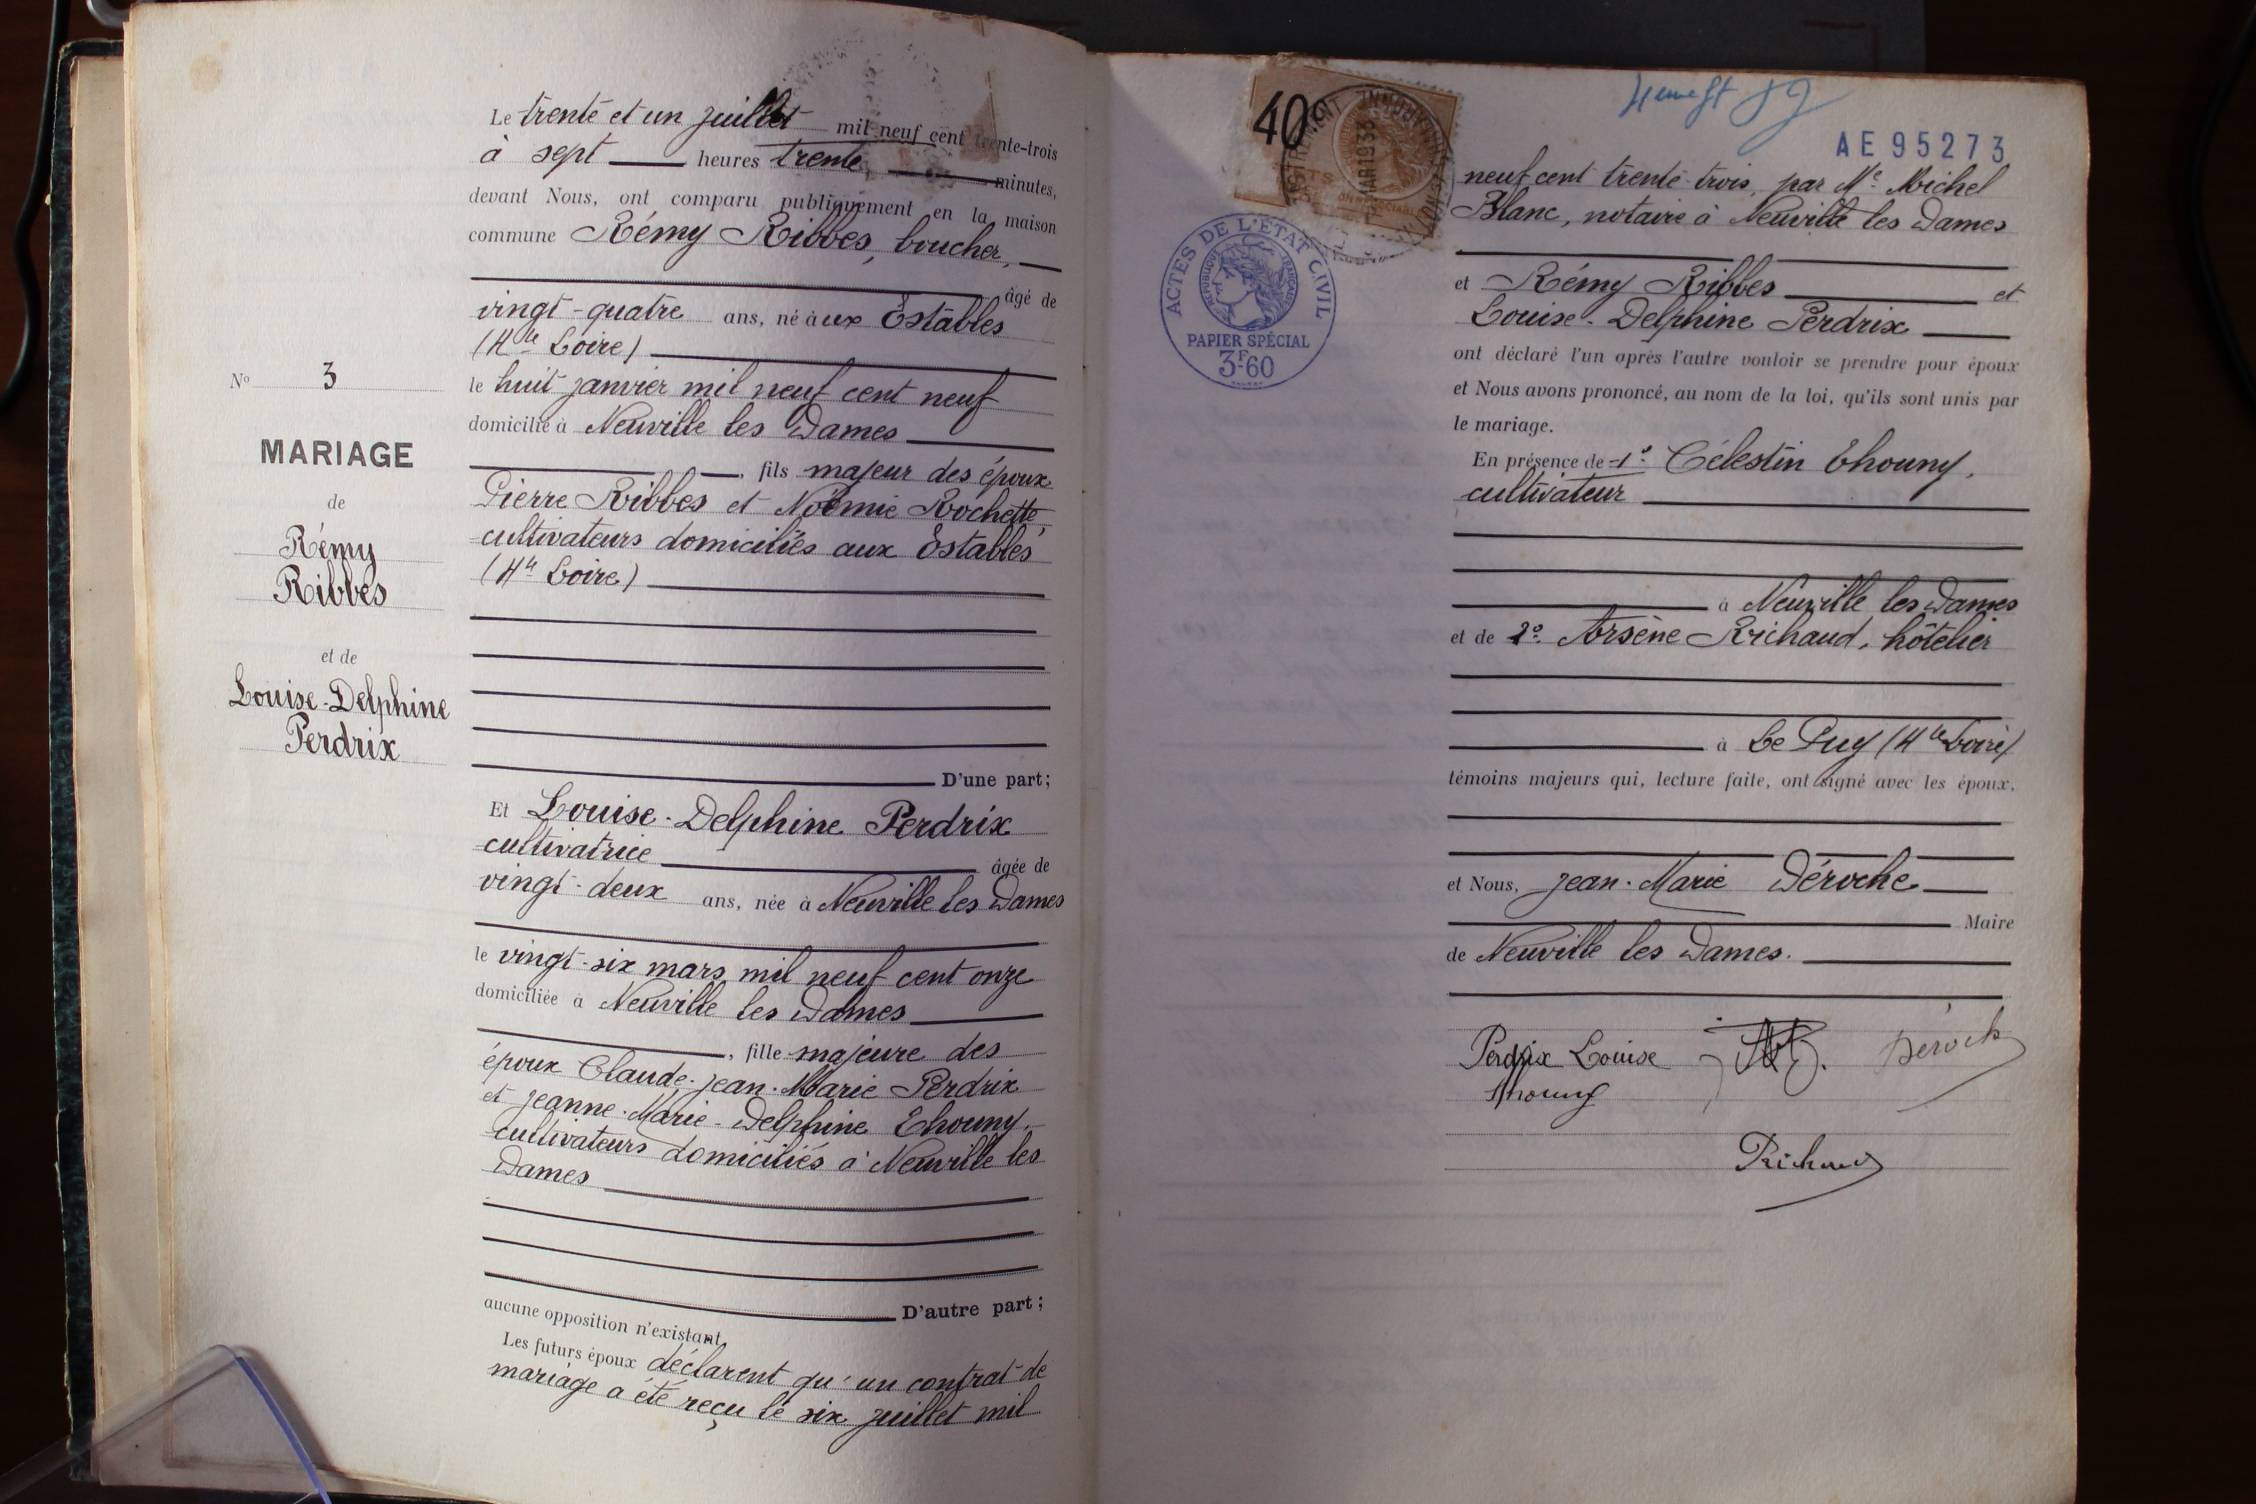 Le trente et un juillet mil neuf cent trente-trois
à sept heures trente minutes,
devant Nous, ont comparu publiquement en la maison
commune Rémy Ribbes, boucher,
âgé de
vingt-quatre ans, né aux Estables
(Hte Loire)
le huit janvier mil neuf cent neuf
domicilié à Neuville les Dames
, fils majeur des époux
Pierre Ribbes et Noëmie Rochette,
cultivateurs domiciliés aux Estables
(Hte Loire)
D'une part;
Et Louise-Delphine Perdrix
cultivatrice âgée de
vingt-deux ans, née à Neuville les Dames
le vingt-six mars mil neuf cent onze
domiciliée à Neuville les Dames
, fille majeure des
époux Claude-Jean-Marie Perdrix
et Jeanne-Marie-Delphine Thouny,
cultivateurs domiciliés à Neuville les
Dames
D'autre part;
aucune opposition n'existant.
Les futurs époux déclarent qu'un contrat de
mariage a été reçu le six juillet mil
No 3
MARIAGE
de
Rémy
Ribbes
et de
Louise-Delphine
Perdrix
40c
MAR 1933
AE 95273
ACTES DE L'ÉTAT CIVIL
RÉPUBLIQUE FRANÇAISE
PAPIER SPÉCIAL
3F.60
neuf cent trente-trois, par Me Michel
Blanc, notaire à Neuville les Dames
et Rémy Ribbes et
Louise-Delphine Perdrix
ont déclaré l'un après l'autre vouloir se prendre pour époux
et Nous avons prononcé, au nom de la loi, qu'ils sont unis par
le mariage.
En présence de 1º Célestin Thouny,
cultivateur
à Neuville les Dames
et de 2º Arsène Richaud, hôtelier
à Le Puy (Hte Loire)
témoins majeurs qui, lecture faite, ont signé avec les époux,
et Nous, Jean-Marie Déroche
Maire
de Neuville les Dames.
Perdrix Louise
Déroche
Thouny
Richaud